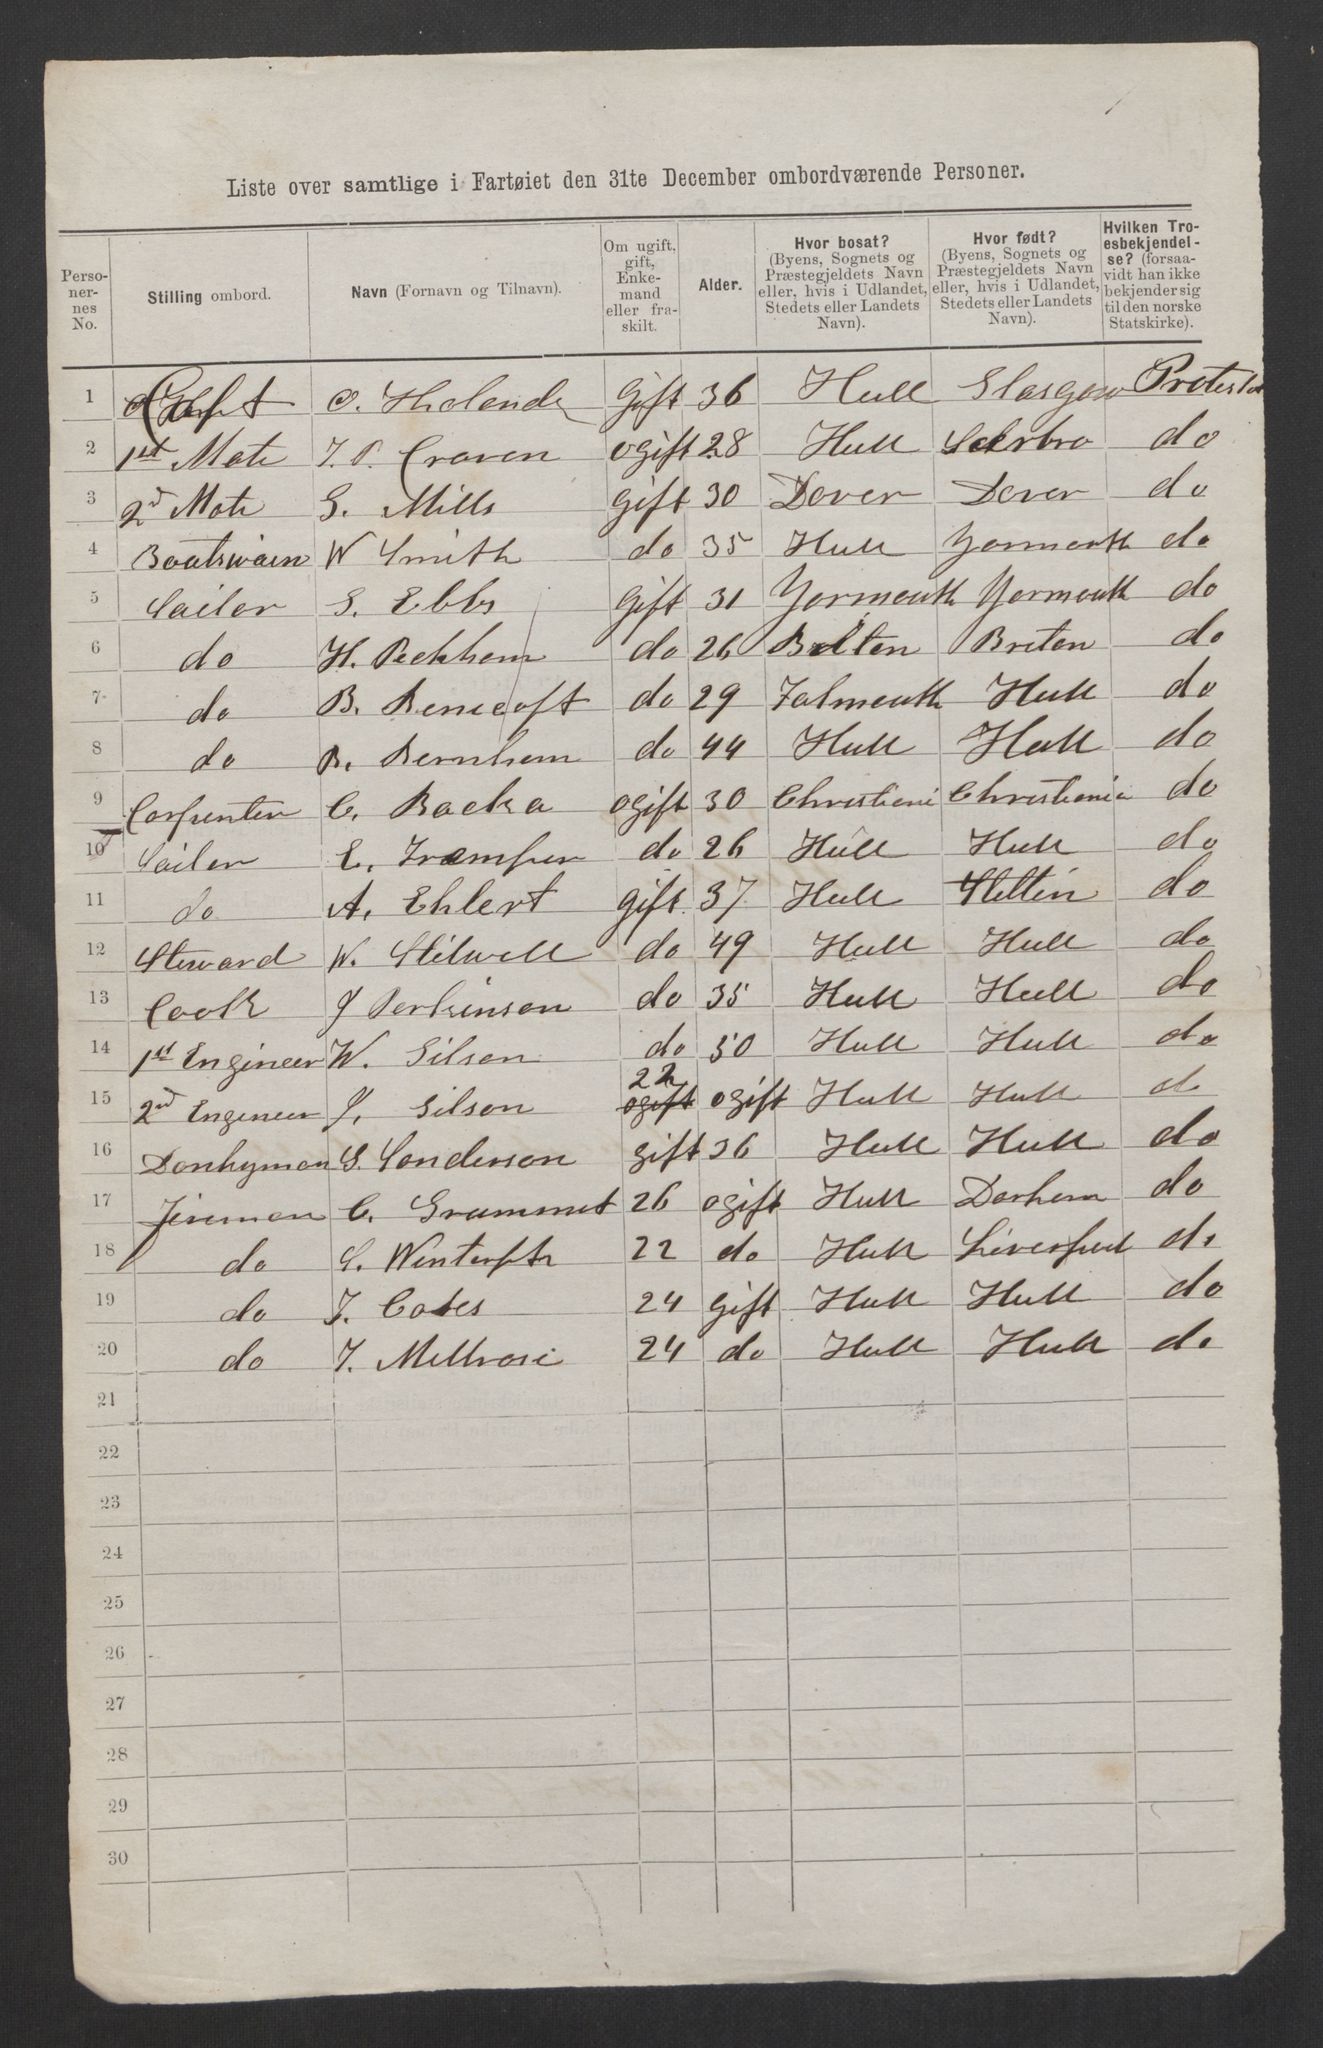 Liste over samtlige i Fartøiet den 31te December ombordværende Personer.
Personernes No. | Stilling ombord. | Navn (Fornavn og Tilnavn). | Om ugift, gift, Enkemand eller fraskilt. | Alder. | Hvor bosat? (Byens, Sognets og Præstegjeldets Navn eller, hvis i Udlandet, Stedets eller Landets Navn). | Hvor født? (Byens, Sognets og Præstegjeldets Navn eller, hvis i Udlandet, Stedets eller Landets Navn). | Hvilken Troesbekjendelse? (forsaavidt han ikke bekjender sig til den norske Statskirke).
1 Capt O. Gift 36 Hull Glasgow
2 1st Mate J. P. Craven ogift 28 Hull do
3 2d Mate G. Mills Gift 30 Dover Dover do
4 Boatswain W Smith do 35 Hull Yarmouth do
5 Sailor G. Ebbs Gift 31 Yarmouth Yarmouth do
6 do H. Peckham do 26 do
7 do B. do 29 Falmouth Hull do
8 do B. do 44 Hull Hull do
9 Carpenter C. Backa ogift 30 Christiani Christiania do
10 Sailor E. do 26 Hull Hull do
11 do A. Ehlert gift 37 Hull Stettin do
12 Steward W. Stilwell do 49 Hull Hull do
13 Cook J Parkinson do 35 Hull Hull do
14 1st Engineer W. Gilson do 50 Hull Hull do
15 2nd Engineer J. Gilson 22 ogift ogift Hull Hull do
16 Donkyman G. Sanderson gift 36 Hull Hull do
17 Fireman C. Grummet 26 ogift Hull Darham do
18 do 22 do Hull Liverpul do
19 do J. Cotes 24 gift Hull Hull do
20 do J. Mellrose 24 do Hull Hull do
21
22
23
24
25
26
27
28
29
30